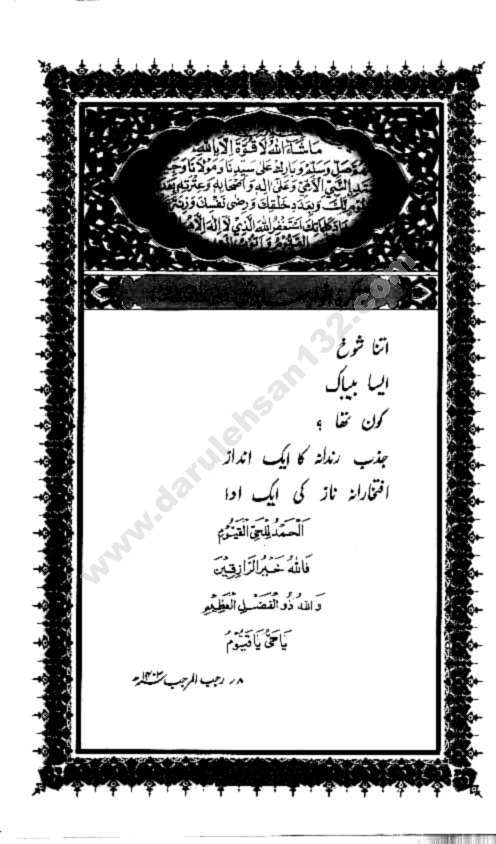 مَا شَاءَ اللهُ لَا قُوَّةَ اِلَّا بِاللهِ
صَلِّ وَسَلِّمْ وَبَارِكْ عَلٰى سَيِّدِنَا وَمَوْلَانَا
النَّبِيِّ الْاُمِّيِّ وَعَلٰى اٰلِهٖ وَاَصْحَابِهٖ وَعِتْرَتِهٖ بِعَدَدِ
وَبِعَدَدِ خَلْقِكَ وَرِضٰى نَفْسِكَ وَزِنَةَ
كَلِمَاتِكَ اَسْتَغْفِرُ اللهَ الَّذِيْ لَا اِلٰهَ اِلَّا
اتنا شوخ
ایسا بیباک
کون تھا ؟
جذب رندانہ کا ایک انداز
افتخارانہ ناز کی ایک ادا!
اَلْحَمْدُ لِلْحَيِّ الْقَيُّوْمِ
فَاللهُ خَيْرُ الرَّازِقِيْنَ
وَاللهُ ذُو الْفَضْلِ الْعَظِيْمِ
يَا حَيُّ يَا قَيُّوْمُ
۸ر رجب المرجب ۱۴۰۲ھ
www.darulehsan132.com